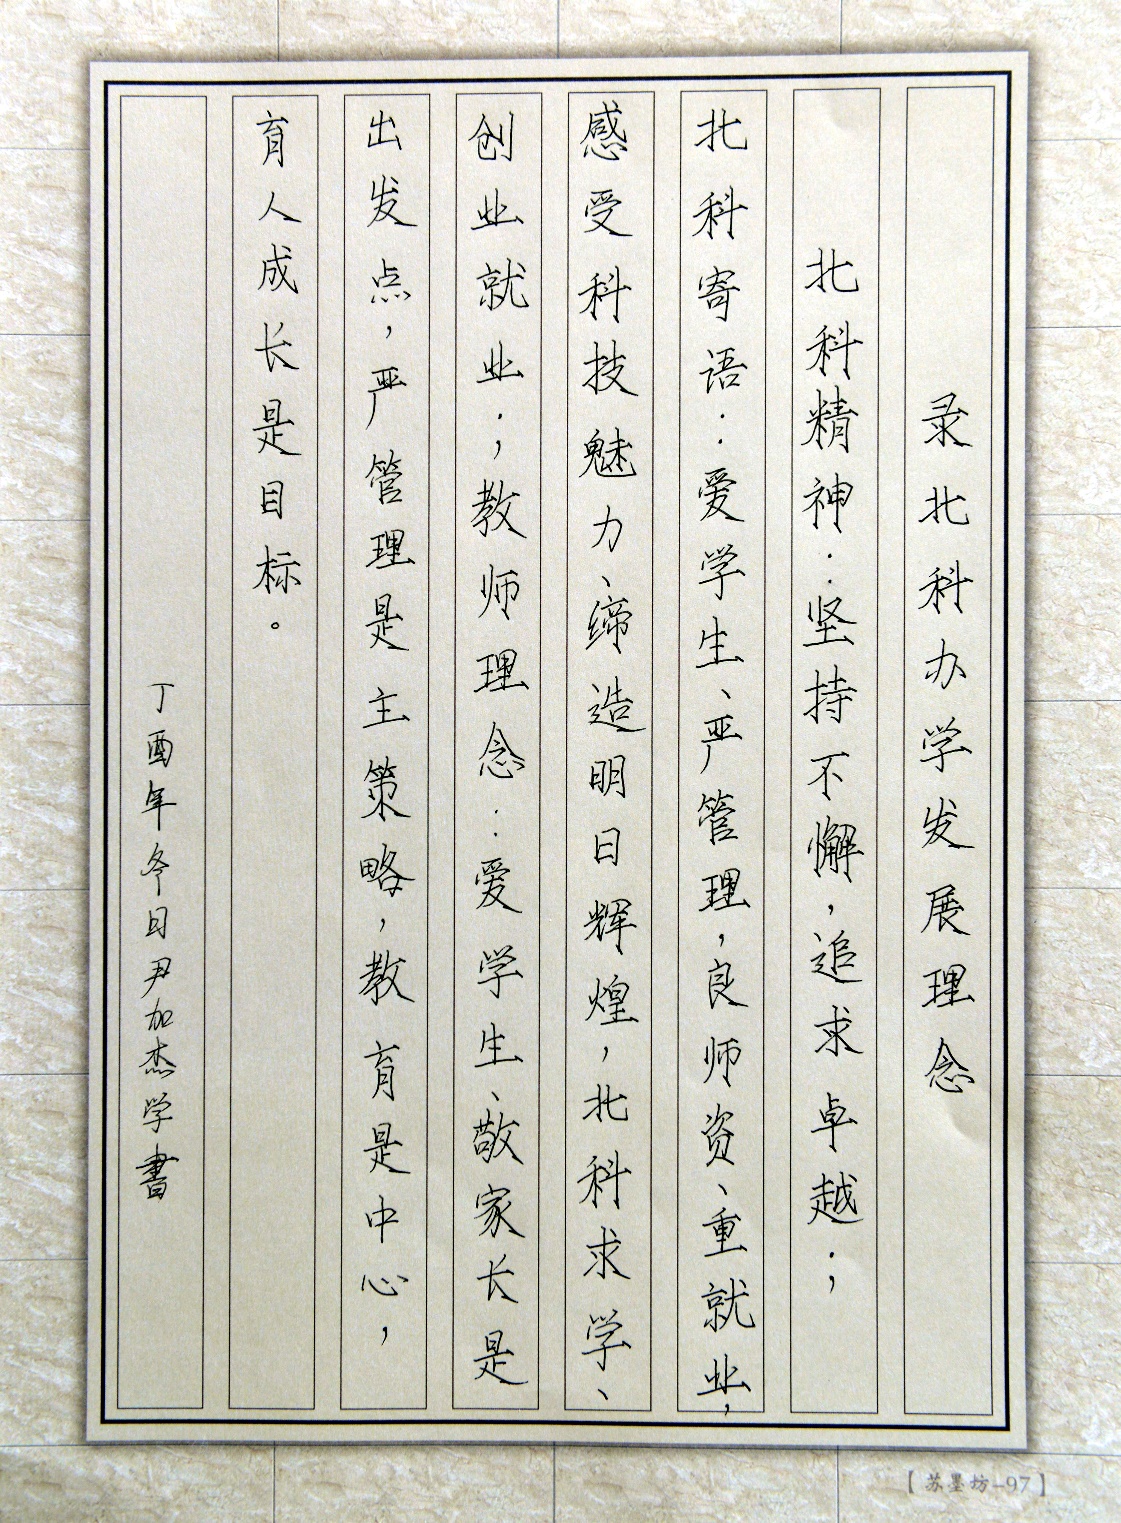 录北科办学发展理念
北科精神：坚持不懈，追求卓越；
北科寄语：爱学生、严管理，良师资、重就业，
感受科技魅力、缔造明日辉煌，北科求学、
创业就业；教师理念：爱学生、敬家长是
出发点，严管理是主策略，教育是中心，
育人成长是目标。
丁酉年冬日尹加杰学書
【苏墨坊-97】